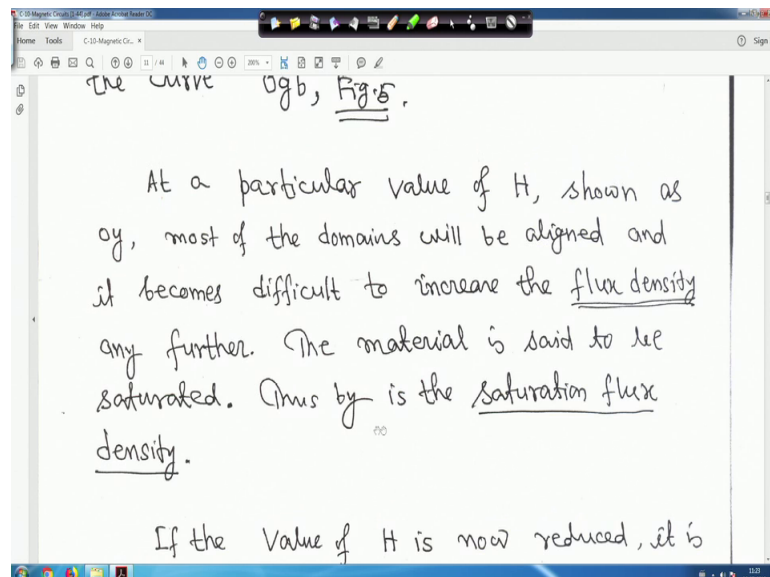 C-10-Magnetic Circuits [1-44].pdf - Adobe Acrobat Reader DC
File Edit View Window Help
Home Tools C-10-Magnetic Cir... × Sign
11 / 44 200%
the curve Ogb, Fig.5.
At a particular value of H, shown as
oy, most of the domains will be aligned and
it becomes difficult to increase the flux density
any further. The material is said to be
saturated. Thus by is the saturation flux
density.
If the value of H is now reduced, it is
11:23